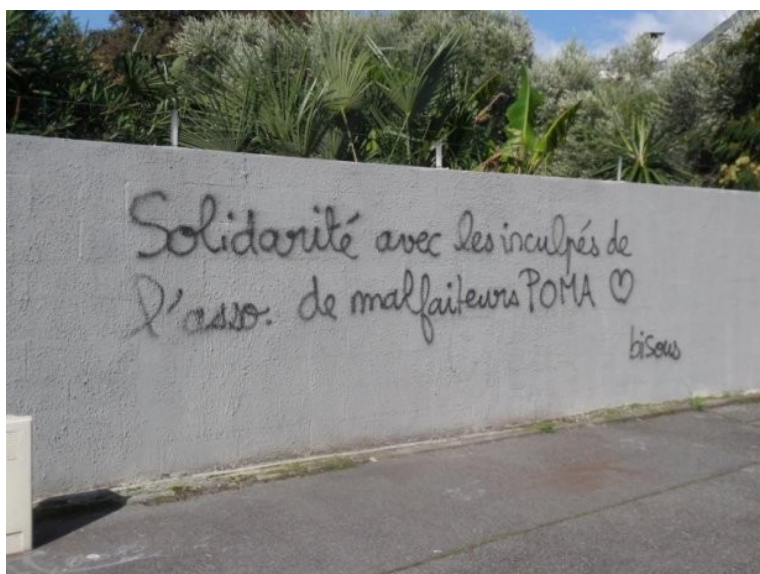 Solidarité avec les inculpés de
l'asso. de malfaiteurs POMA ♡
bisous